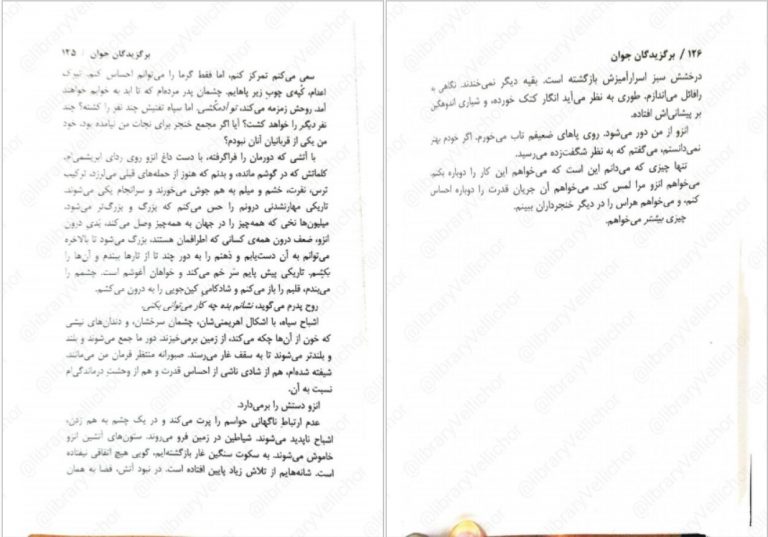 برگزیدگان جوان / ۱۲۵
سعی می‌کنم تمرکز کنم، اما فقط گرما را می‌توانم احساس کنم. تیرک
اعدام، کُپه‌ی چوبِ زیر پاهایم. چشمان پدر مرده‌ام که تا ابد به خوابم خواهند
آمد. روحش زمزمه می‌کند، تو آدمکُشی. اما سپاه تفتیش چند نفر را کشته؟ چند
نفر دیگر را خواهد کشت؟ آیا اگر مجمع خنجر برای نجات من نیامده بود، خود
من یکی از قربانیان آنان نبودم؟
با آتشی که دورمان را فراگرفته، با دست داغ انزو روی ردای ابریشمی‌ام،
کلماتش که در گوشم مانده، و بدنم که هنوز از حمله‌های قبلی می‌لرزد، ترکیب
ترس، نفرت، خشم و میلم به هم جوش می‌خورند و سرانجام یکی می‌شوند.
تاریکی مهارنشدنی درونم را حس می‌کنم که بزرگ و بزرگ‌تر می‌شود،
میلیون‌ها نخی که همه‌چیز را در جهان به همه‌چیز وصل می‌کند، بَدی درون
انزو، ضعف درون همه‌ی کسانی که اطرافمان هستند. بزرگ می‌شود تا بالاخره
می‌توانم به آن دست‌یابم و ذهنم را به دور چند تا از تارها ببندم و آن‌ها را
بکِشم. تاریکی پیش پایم سَر خم می‌کند و خواهان آغوشم است. چشمم را
می‌بندم، قلبم را باز می‌کنم و شادکامی کین‌جویی را به درون می‌کشم.
روح پدرم می‌گوید، نشانم بده چه کار می‌توانی بکنی.
اشباح سیاه، با اشکال اهریمنی‌شان، چشمان سرخشان، و دندان‌های نیشی
که خون از آن‌ها چکه می‌کند، از زمین برمی‌خیزند. دور ما جمع می‌شوند و بلند
و بلندتر می‌شوند تا به سقف غار می‌رسند. صبورانه منتظر فرمان من می‌مانند.
شیفته شده‌ام، هم از شادی ناشی از احساس قدرت و هم از وحشتِ درماندگی‌ام
نسبت به آن.
انزو دستش را برمی‌دارد.
عدم ارتباطِ ناگهانی حواسم را پرت می‌کند و در یک چشم به هم زدن،
اشباح ناپدید می‌شوند. شیاطین در زمین فرو می‌روند. ستون‌های آتشین انزو
خاموش می‌شوند. به سکوت سنگین غار بازگشته‌ایم، گویی هیچ اتفاقی نیفتاده
است. شانه‌هایم از تلاش زیاد پایین افتاده است. در نبود آتش، فضا به همان
۱۲۶ / برگزیدگان جوان
درخشش سبز اسرارآمیزش بازگشته است. بقیه دیگر نمی‌خندند. نگاهی به
رافائل می‌اندازم. طوری به نظر می‌آید انگار کتک خورده، و شیاری اندوهگین
بر پیشانی‌اش افتاده.
انزو از من دور می‌شود. روی پاهای ضعیفم تاب می‌خورم. اگر خودم بهتر
نمی‌دانستم، می‌گفتم که به نظر شگفت‌زده می‌رسید.
تنها چیزی که می‌دانم این است که می‌خواهم این کار را دوباره بکنم.
می‌خواهم انزو مرا لمس کند. می‌خواهم آن جریان قدرت را دوباره احساس
کنم، و می‌خواهم هراس را در دیگر خنجرداران ببینم.
چیزی بیشتر می‌خواهم.
@libraryVellichor